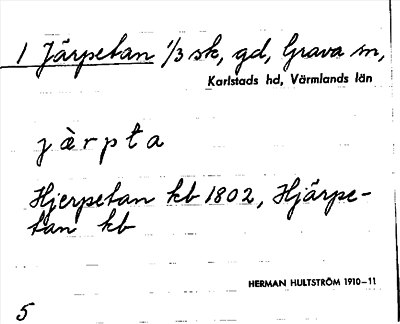 1 Järpetan 1/3 sk, gd, Grava sn,
Karlstads hd, Värmlands län
jàrpta
Hjerpetan kb 1802, Hjärpe-
tan kb
HERMAN HULTSTRÖM 1910–11
5